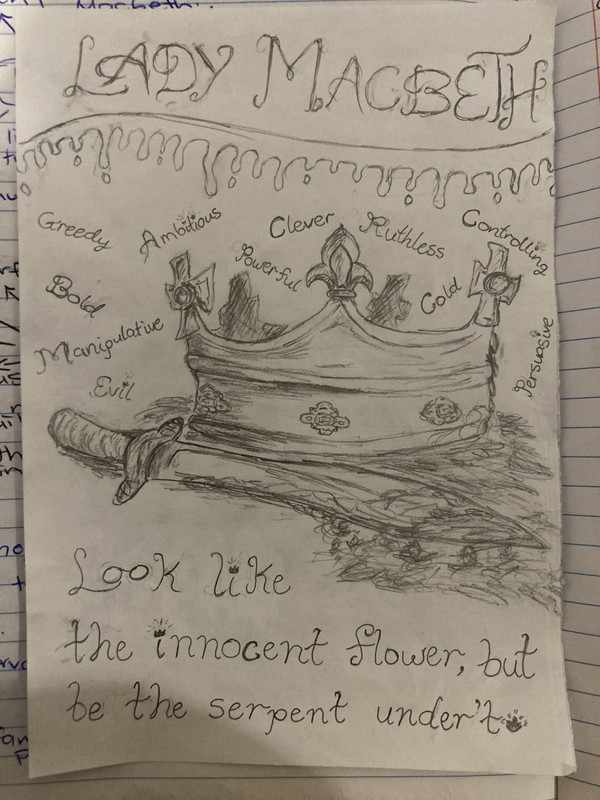 Macbeth.
LADY MACBETH
Greedy
Ambitious
Clever
Ruthless
Controlling
Powerful
Bold
Cold
Manipulative
Persuasive
Evil
Look like
the innocent flower, but
be the serpent under't.